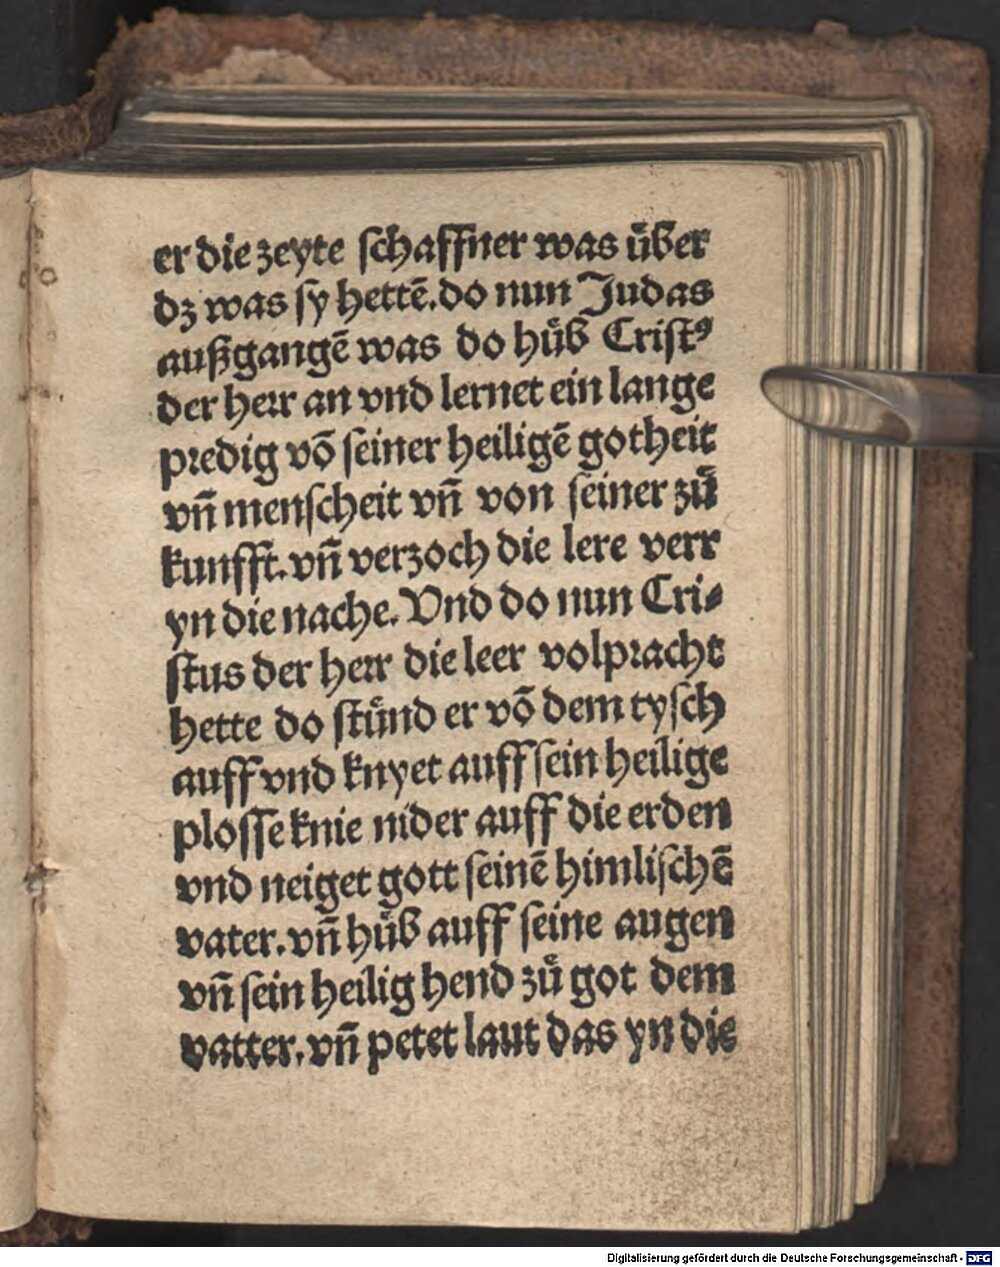 er die zeyte ſchaffner was über
dz was ſy hettē. do nun Judas
außgangē was do hůb Criſtꝰ
der herr an vnd lernet ein lange
predig vō ſeiner heiligē gotheit
vn̄ menſcheit vn̄ von ſeiner zů
kunfft. vn̄ verzoch die lere verr
yn die nache. Vnd do nun Cri⸗
ſtus der herr die leer volpracht
hette do ſtůnd er vō dem tyſch
auff vnd knyet auff ſein heilige
ploſſe knie nider auff die erden
vnd neiget gott ſeinē himliſchē
vater. vn̄ hůb auff ſeine augen
vn̄ ſein heilig hend zů got dem
vatter. vn̄ petet laut das yn die
Digitalisierung gefördert durch die Deutsche Forschungsgemeinschaft - DFG